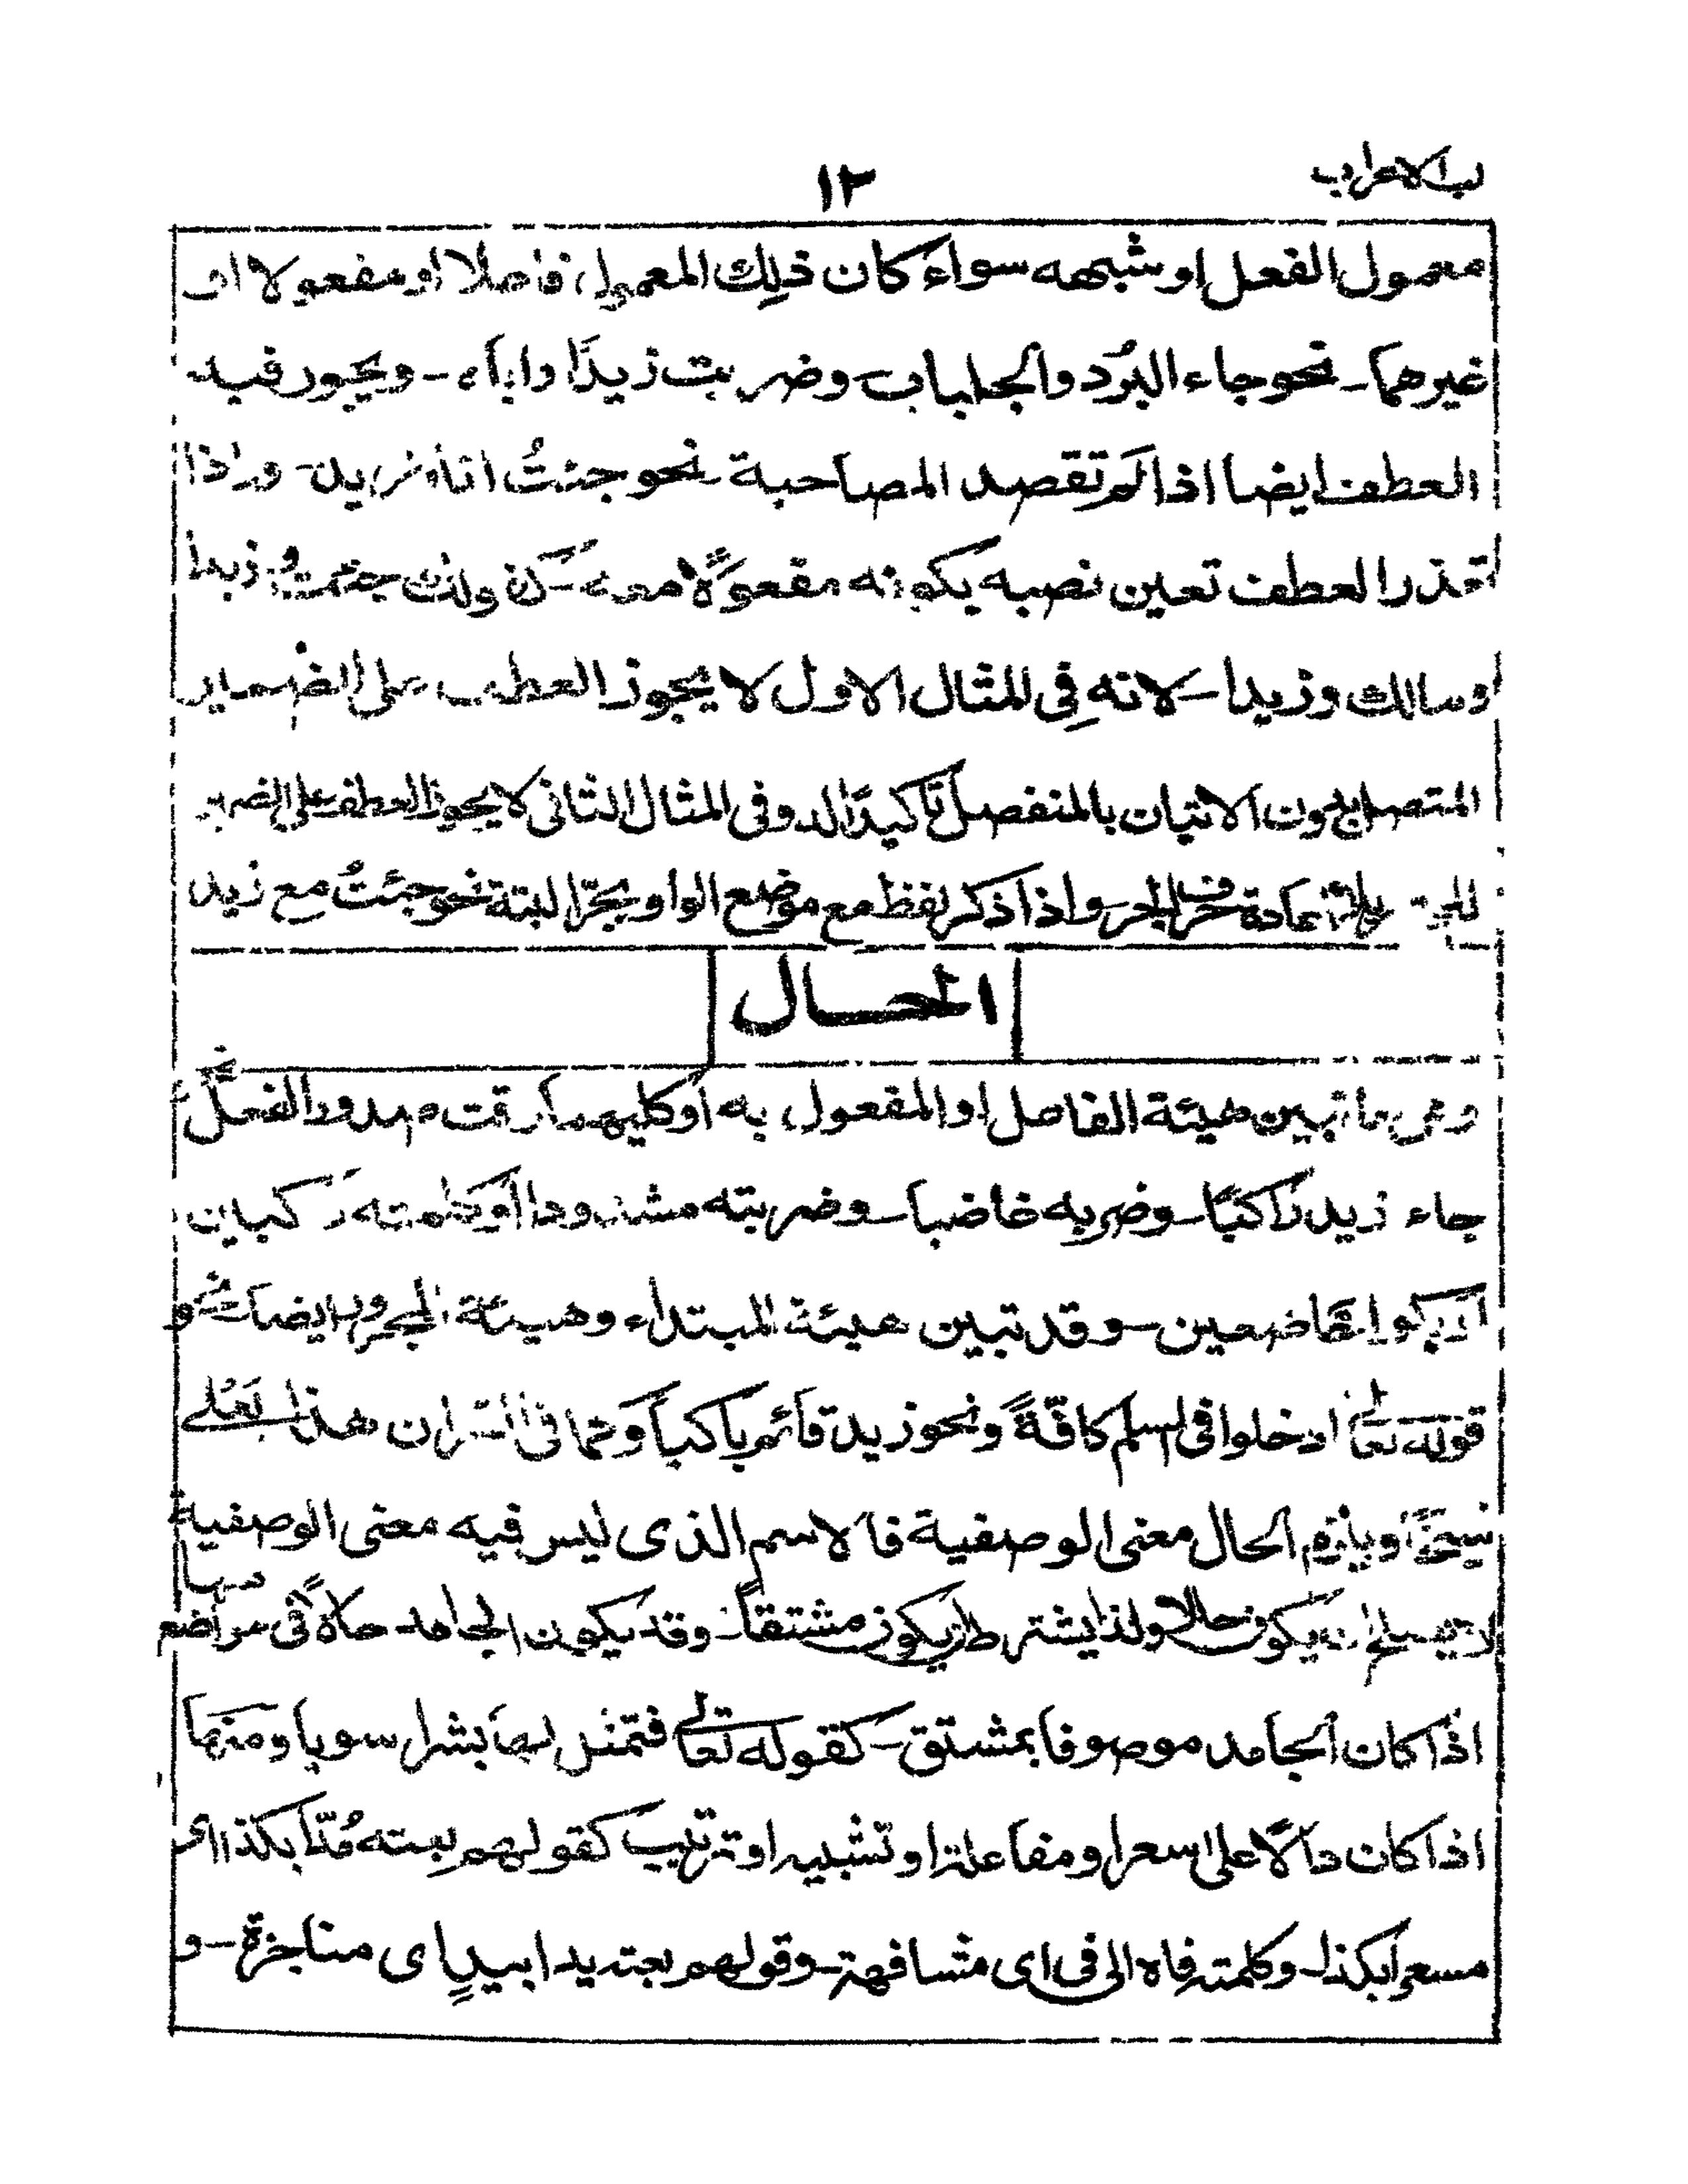 لب الاعراب
١٢
معمول الفعل او شبهه سواء كان ذلك المعمول فاعلا او مفعولا او
غيرهما ـ نحو جاء البُرد والجلباب ـ وضربت زيدًا واياه ـ ويجوز فيه
العطف ايضا اذا لم تقصد المصاحبة ـ نحو جئتُ انا وزيد ـ واذا
تعذر العطف تعين نصبه بكونه مفعولًا معه ـ جئت وزيدا
ومالك وزيدا ـ لانه فِي المثال الاول لا يجوز العطف على الضمير
المتصل بدون الاتيان بالمنفصل تاكيدًا له وفى المثال الثانى لا يجوز العطف على الضمير
حرف الجر ـ واذا ذكر لفظ مع موضع الواو يجرّ البتة نحو جئتُ مع زيد
الحال
وهى ما تبين هيئة الفاعل او المفعول به او كليهما وقت صدور الفعل نحو
جاء زيد راكبًا ـ وضربه غاضبا ـ وضربته مشدودا او كلمته راكبين
ـ وقد تبين هيئة المبتداء وهيئة المجرور ايضا نحو
قوله تعالى ادخلوا فى السلم كافّةً ونحو زيد قائم راكبا وكما فى القران هذا بَعْلى
شيخًا ويلزم الحال معنى الوصفية فالاسم الذى ليس فيه معنى الوصفية
لا يصلح ان يكون حالا ولذا يشترط ان يكون مشتقا ـ وقد يكون الجامد حالًا فى مواضع منها
اذا كان الجامد موصوفا بمشتق ـ كقوله تعالى فتمثل لها بشرا سويا ومنها
اذا كان دالًا على سعر او مفاعلة او تشبيه او ترتيب كقولهم بعته مُدّا بكذا اى
مسعرا بكذا ـ وكلمته فاه الى فى اى مشافهة ـ وقولهم بعته يدا بيدٍ اى مناجزة ـ و